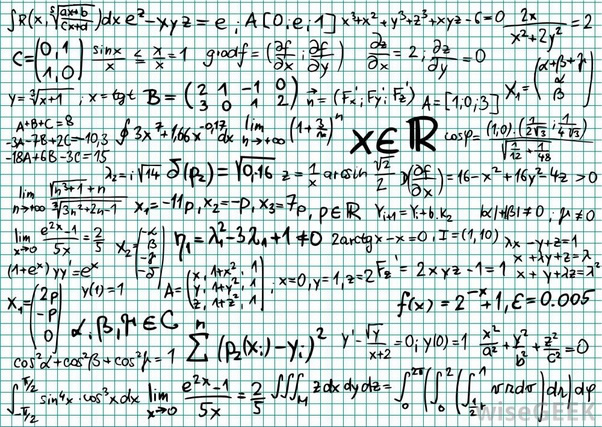 ∫R(x, ⁵√((ax+b)/(cx+d)))dx e^z - xyz = e; A[0,e,1] x³+x²+y³+z³+xyz-6=0 2x/(x²+2y²) = 2
C = (0, 1; 1, 0) sinx/x ≤ x/x = 1 gradf = (∂f/∂x ; ∂f/∂y) ∂z/∂x = 2; ∂z/∂y = 0 X₁ = (α+β+γ, α, β)
y = ³√(x+1) ; x = tgt B = (2 1 -1 0; 3 0 1 2) n⃗ = (Fx'; Fy'; Fz') A=[1;0;3]
A+B+C=8
-3A-7B+2C=-10,3
-18A+6B-3C=15
∮3x⁷+1,66x^-0,17 dx lim n→+∞ (1+3/n)ⁿ x∈ℝ cosφ = (1,0)·(1/(2√3); 1/(4√3)) / √(1/12+1/48)
λ₂=i√14 δ(p₂)=√0,16 z = 1/x arcsin √2/2 (∂f/∂x) = 16-x²+16y²-4z > 0
lim n→+∞ √(n³+1+n) / ³√(3n²+2n-1) x₁=-11p, x₂=-p, x₃=7p, p∈ℝ Yᵢ₊₁=Yᵢ+b.k₂ |α|+|β|≠0 ; γ≠0
lim x→0 (e^2x-1)/5x = 2/5 x₂ = (-α, -β, -γ, -δ) η₁=λ₁²-3λ₁+1≠0 2arctgx-x=0, I=(1,10)
λx-y+z=1
x+λy+z=λ
x+y+λz=λ²
(1+e^x)yy'=e^x
y(1)=1 A = (x, 1+x², 1; y, 1+y², 1; z, 1+z², 1) ; x=0, y=1, z=2 Fz' = 2xyz-1=1
X₁ = (2p, -p, 0) α, β, γ ∈ C f(x) = 2^-x+1, ε=0.005
∑ n (p₂(xᵢ)-yᵢ)² y'-√y/(x+2)=0; y(0)=1 x²/a²+y²/b²+z²/c²=0
cos²α+cos²β+cos²γ=1
∫ π/2 -π/2 sin⁴x·cos³xdx lim x→0 (e^2x-1)/5x = 2/5 ∭M zdxdydz = ∫ 2π 0 (∫ 2 0 (∫ 1 1/2 dr)dη)dφ
wiseGEEK